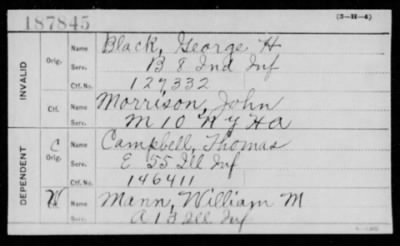 187845 (3-H-4)
INVALID
Orig. Name Black, George H
Serv. B 8 Ind Inf
Ctf. No. 127332
Ctf. Name Morrison, John
Serv. M 10 N Y H A
DEPENDENT
C Orig. Name Campbell, Thomas
Serv. E 55 Ill Inf
Ctf. No. 146411
W Ctf. Name Mann, William M
Serv. A 13 Ill Inf